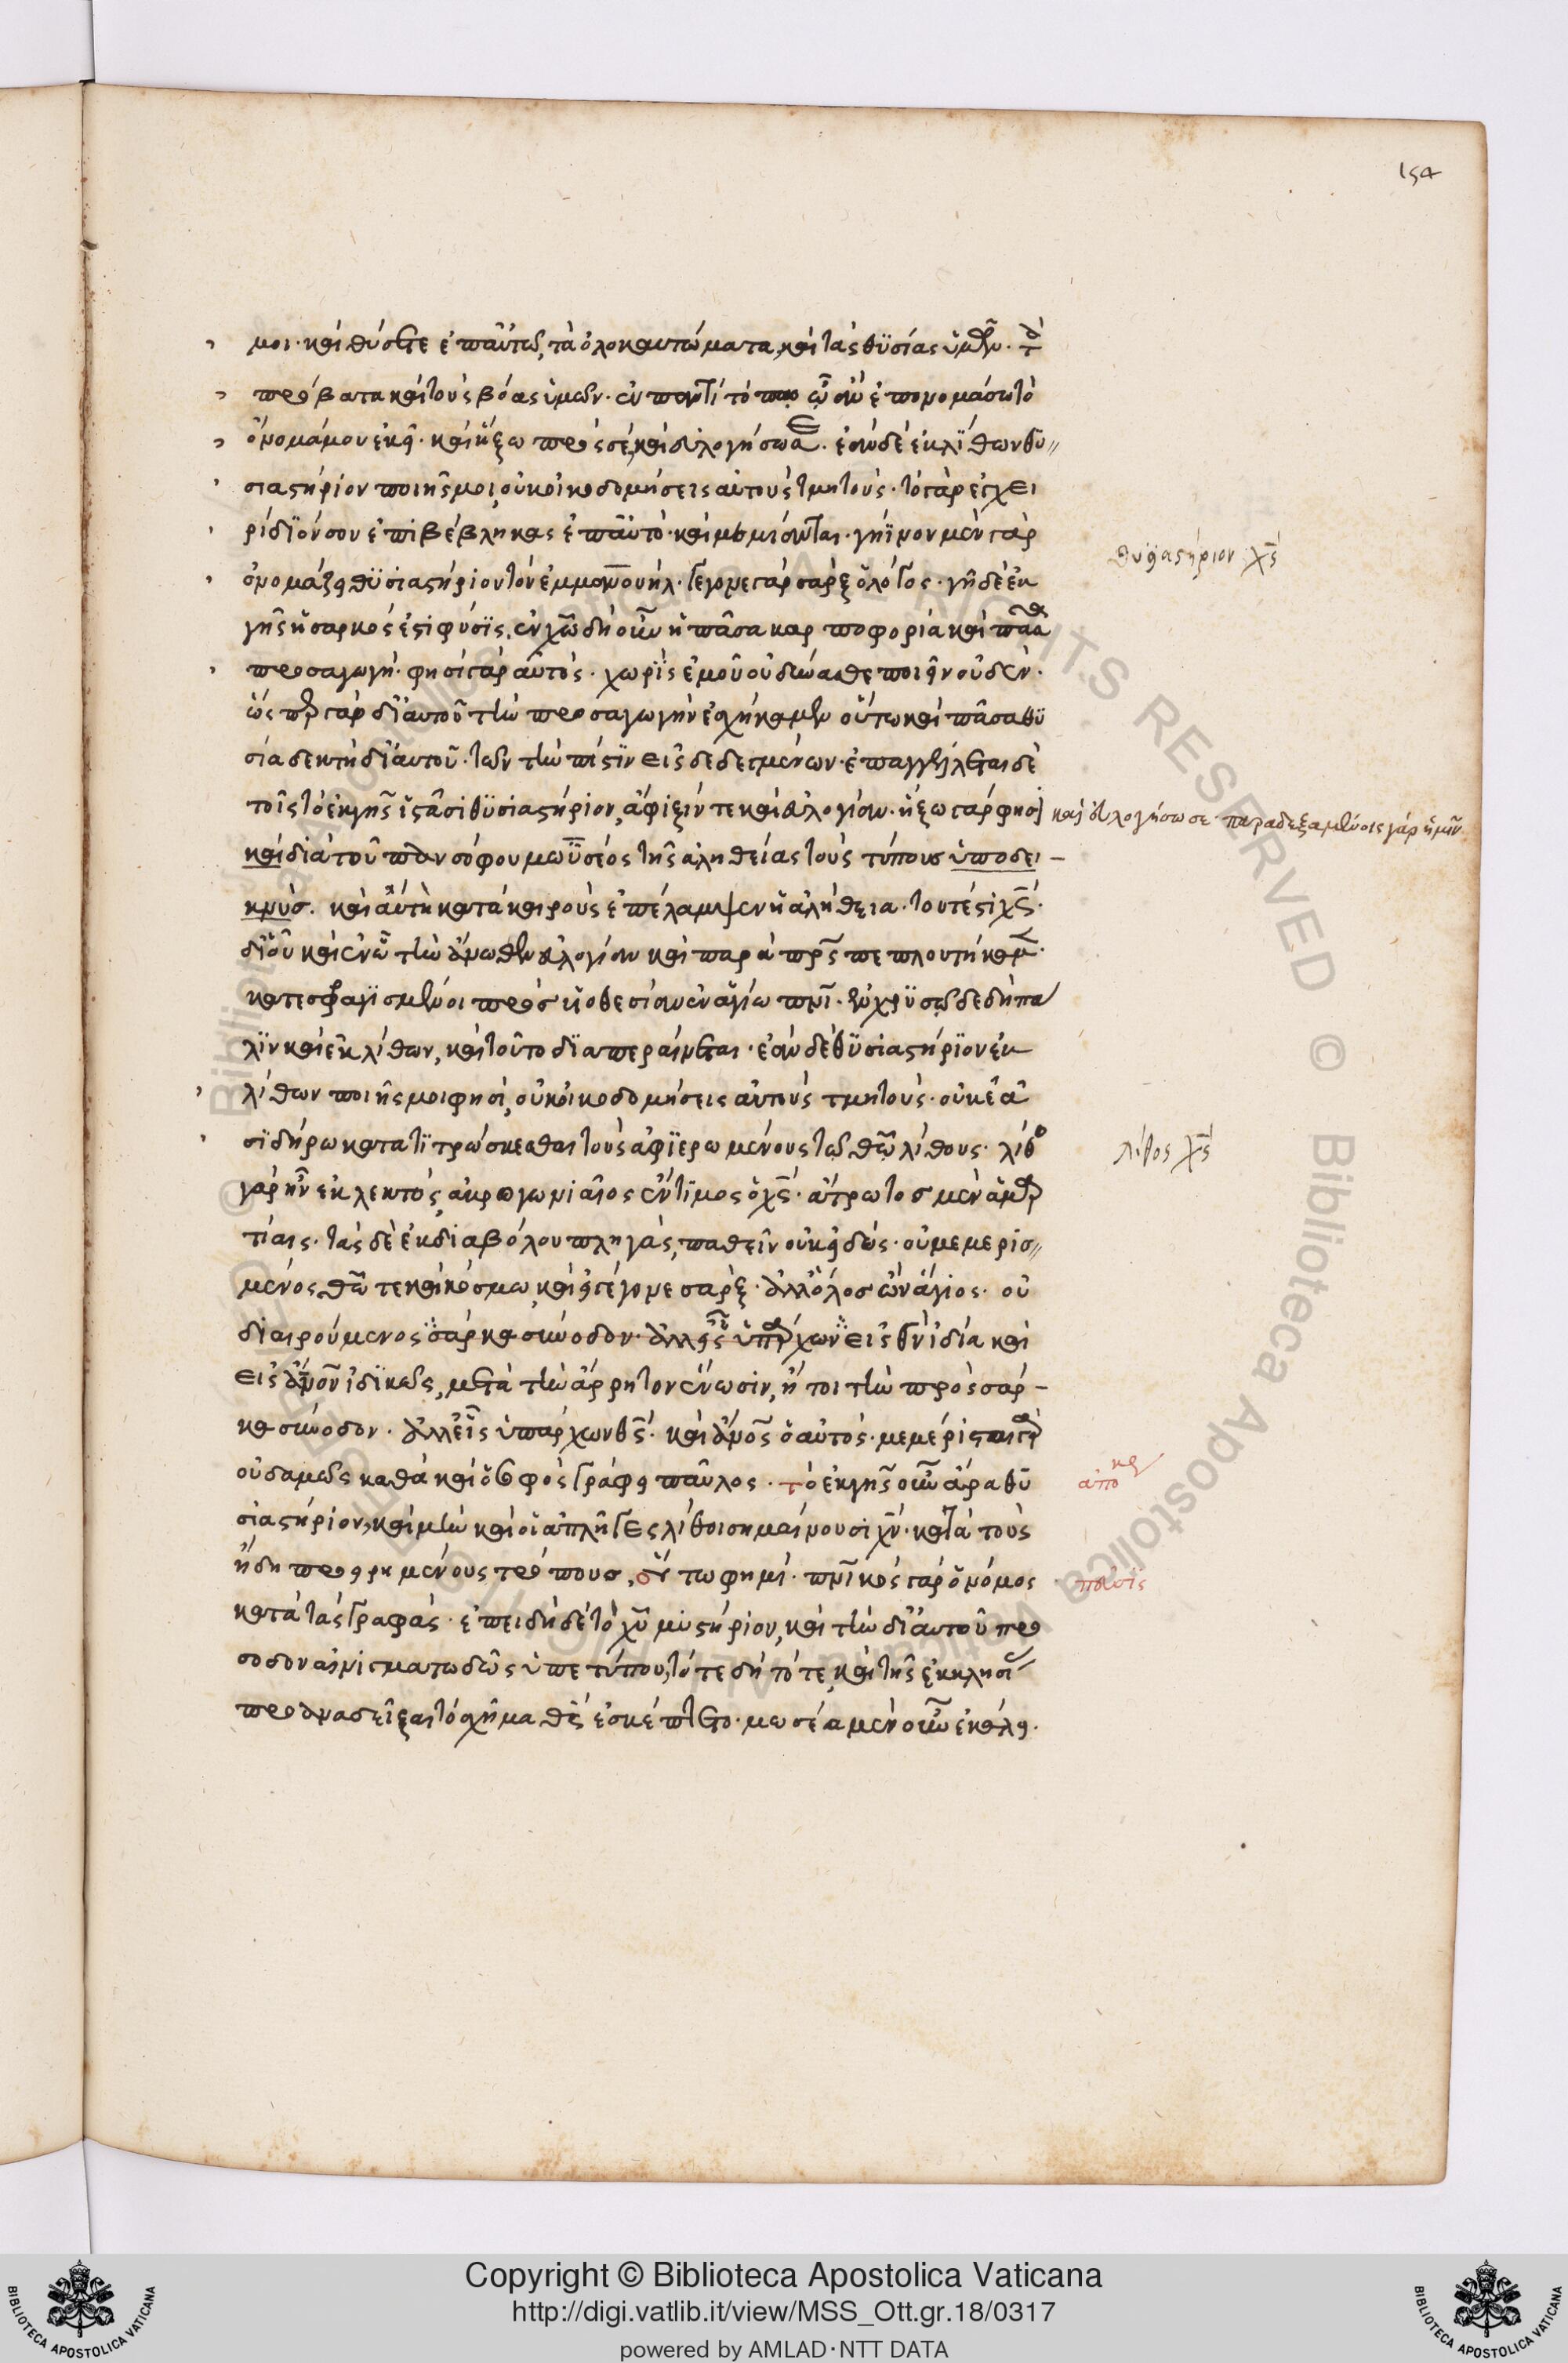 154
μοι· καὶ θύσετε ἐπ αὐτῶ, τὰ ὁλοκαυτώματα, καὶ τὰς θυσίας ὑμῶν· τὰ
πρόβατα καὶ τοὺς βόας ὑμῶν· ἐν παντὶ τόπω ᾧ ἐὰν ἐπονομάσω τὸ
ὄνομά μου ἐκεῖ· καὶ ἥξω πρὸς σὲ, καὶ εὐλογήσω σε. ἐὰν δὲ ἐκ λίθων θυ
σιαστήριον ποιῆς μοι, οὐκ οἰκοδομήσεις αὐτοὺς τμητούς· τὸ γὰρ ἐγχει
ρίδιόν σου ἐπιβέβληκας ἐπ αὐτό· καὶ μεμίανται· γήϊνον μὲν γὰρ
ὀνομάζει θυσιαστήριον τὸν ἐμμανουήλ· γέγονε γὰρ σὰρξ ὁ λόγος· γῆ δὲ ἐκ
γῆς ἡ σαρκός ἐστι φύσις. ἐν χῶ δὴ οὖν ἡ πᾶσα καρποφορία καὶ πᾶσα
προσαγωγή· φησὶ γὰρ αὐτός· χωρὶς ἐμοῦ οὐ δύνασθε ποιεῖν οὐδέν·
ὥσπερ γὰρ δι αὐτοῦ τὴν προσαγωγὴν ἐσχήκαμεν οὕτω καὶ πᾶσα θυ
σία δεκτὴ δι αὐτοῦ· τῶν τὴν πίστιν εἰσδεδεγμένων· ἐπαγγέλλεται δὲ
τοῖς τὸ ἐκ γῆς ἱστᾶσι θυσιαστήριον, ἄφιξίν τε καὶ εὐλογίαν· ἥξω γάρ φησι
καὶ εὐλογήσω σε παραδεξαμένοις γὰρ ἡμῖν
καὶ διὰ τοῦ πανσόφου μωϋσέος τῆς ἀληθείας τοὺς τύπους ὑποδει-
κνύς. καὶ αὐτὴ κατὰ καιροὺς ἐπέλαμψεν ἡ ἀλήθεια· τουτέστι χς·
δι οὗ καὶ ἐν ᾧ τὴν ἄνωθεν εὐλογίαν καὶ παρὰ πρς πεπλουτήκαμεν·
κατεσφραγισμένοι πρὸς υἱοθεσίαν ἐν ἁγίω πνι·
λιν καὶ ἐκ λίθων, καὶ τοῦτο διαπεραίνεται· ἐὰν δὲ θυσιαστήριον ἐκ
λίθων ποιῆς μοι φησὶ, οὐκ οἰκοδομήσεις αὐτοὺς τμητούς· οὐκ ἐᾶ
σιδήρω κατατιτρώσκεσθαι τοὺς ἀφιερωμένους τῶ θῶ λίθους· λίθος
γὰρ ἦν ἐκλεκτός, ἀκρογωνιαῖος ἔντιμος ὁ χς· ἄτρωτος μὲν ἁμαρ
τίαις· τὰς δὲ ἐκ διαβόλου πληγὰς, παθεῖν οὐκ εἰδώς· οὐ μεμερισ
μένος θῶ τε καὶ κόσμω, καὶ εἰ γέγονε σάρξ· ἀλλ ὅλος ὢν ἅγιος· οὐ
διαιρούμενος
εἰς ἄνον ἰδικῶς, μετὰ τὴν ἄρρητον ἕνωσιν, ἤτοι τὴν πρὸς σάρ-
κα σύνοδον· ἀλλ εἷς ὑπάρχων θς· καὶ ἄνος ὁ αὐτός· μεμέρισται γὰρ
οὐδαμῶς καθὰ καὶ ὁ σοφὸς γράφει παῦλος· τὸ ἐκ γῆς οὖν ἄρα θυ
σιαστήριον, καὶ μὴν καὶ οἱ ἀπληγες λίθοι σημαίνουσι χν· κατὰ τοὺς
ἤδη προειρημένους τρόπους, οὕτω φημί· πνικὸς γὰρ ὁ νόμος
κατὰ τὰς γραφάς· ἐπειδὴ δὲ τὸ χυ μυστήριον, καὶ τὴν δι αὐτοῦ προ
σοδον αἰνιγματωδῶς ὑπετύπου, τό τε δὴ τότε, καὶ τῆς ἐκκλησίας
προαναδεῖξαι τὸ σχῆμα θς ἐσκέπτετο· μωσέα μὲν οὖν ἐκάλει.
θυσιαστήριον χς
λίθος χς
Copyright © Biblioteca Apostolica Vaticana
http://digi.vatlib.it/view/MSS_Ott.gr.18/0317
powered by AMLAD·NTT DATA